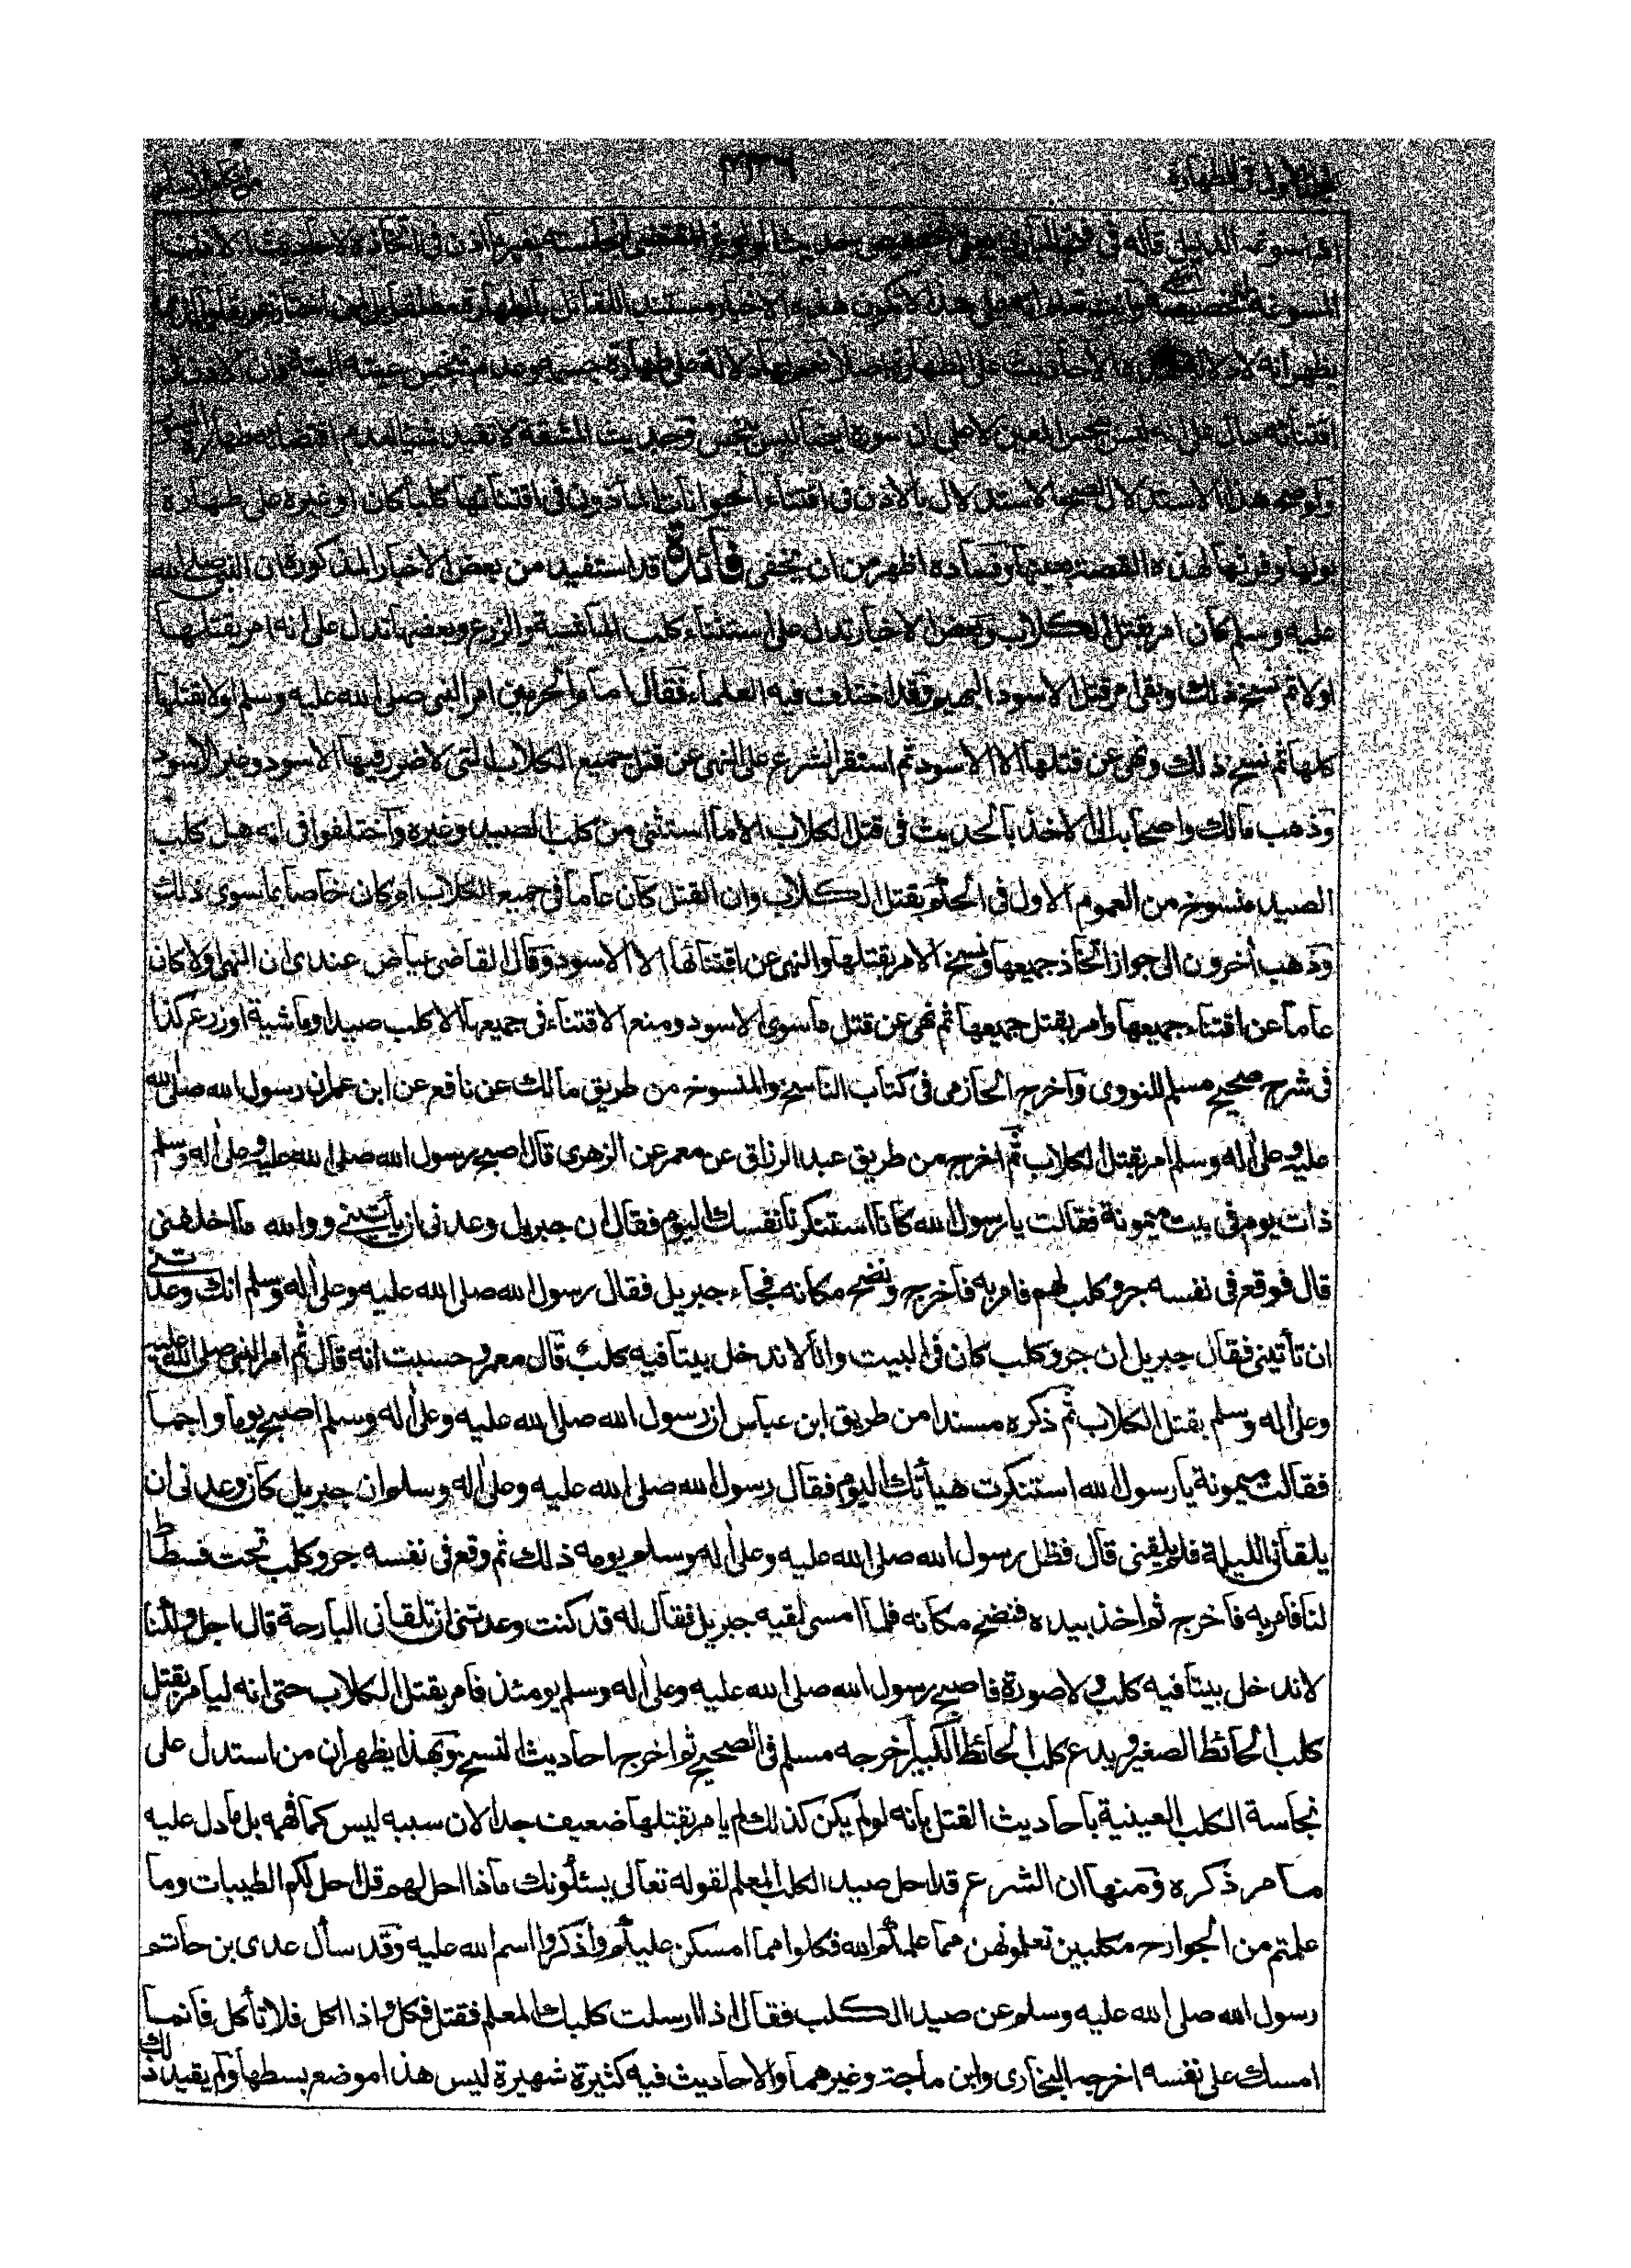 ٤٣٦
بولها وفرثها لهذه القصة بعينها وفساده اظهر من ان يخفى فائدة قد استفيد من بعض الاخبار المذكورة ان النبى صلى الله
عليه وسلم كان امر بقتل الكلاب وبعض الاخبار تدل على استثناء كلب الماشية والزرع وبعضها تدل على انه امر بقتلها
اولا ثم نسخ ذلك وبقى امر قتل الاسود البهيم وقد اختلف فيه العلماء فقال امام الحرمين امر النبى صلى الله عليه وسلم اولا بقتلها
كلها ثم نسخ ذلك ونهى عن قتلها الا الاسود ثم استقر الشرع على النهى عن قتل جميع الكلاب التى لا ضرر فيها الاسود وغير الاسود
وذهب مالك واصحابه الى الاخذ بالحديث فى قتل الكلاب الا ما استثنى من كلب الصيد وغيره واختلفوا فى انه هل كلب
الصيد منسوخ من العموم الاول فى الحكم بقتل الكلاب وان القتل كان عاما فى جميع الكلاب او كان خاصا بما سوى ذلك
وذهب أخرون الى جواز اتخاذ جميعها ونسخ الامر بقتلها والنهى عن اقتنائها الا الاسود وقال القاضى عياض عندى ان النهى اولا كان
عاما عن اقتناء جميعها وامر بقتل جميعها ثم نهى عن قتل ما سوى الاسود ومنع الاقتناء فى جميعها الا كلب صيد او ماشية او زرع كذا
فى شرح صحيح مسلم للنووى واخرج الحازمى فى كتاب الناسخ والمنسوخ من طريق مالك عن نافع عن ابن عمر ان رسول الله صلى الله
عليه وعلى أله وسلم امر بقتل الكلاب ثم اخرج من طريق عبد الرزاق عن معمر عن الزهرى قال اصبح رسول الله صلى الله عليه وعلى أله وسلم
ذات يوم فى بيت ميمونة فقالت يا رسول الله كانا استنكرنا نفسك اليوم فقال ان جبريل وعدنى ان يأتينى ووالله ما اخلفنى
قال فوقع فى نفسه جرو كلب لهم فامر به فاخرج ونضح مكانه فجاء جبريل فقال رسول الله صلى الله عليه وعلى أله وسلم انك وعدتنى
ان تأتينى فقال جبريل ان جرو كلب كان فى البيت وانا لا ندخل بيتا فيه كلب قال معمر وحسبت انه قال ثم امر النبى صلى الله عليه
وعلى أله وسلم بقتل الكلاب ثم ذكره مسندا من طريق ابن عباس ان رسول الله صلى الله عليه وعلى أله وسلم اصبح يوما واجما
فقالت ميمونة يا رسول الله استنكرت هيأتك اليوم فقال رسول الله صلى الله عليه وعلى أله وسلم ان جبريل كان وعدنى ان
يلقانى الليلة فلم يلقنى قال فظل رسول الله صلى الله عليه وعلى أله وسلم يومه ذلك ثم وقع فى نفسه جرو كلب تحت فسطاط
لنا فامر به فاخرج ثم اخذ بيده فنضح مكانه فلما امسى لقيه جبريل فقال له قد كنت وعدتنى ان تلقانى البارحة قال اجل ولكنا
لا ندخل بيتا فيه كلب ولا صورة فاصبح رسول الله صلى الله عليه وعلى أله وسلم يومئذ فامر بقتل الكلاب حتى انه ليامر بقتل
كلب الحائط الصغير ويدع كلب الحائط الكبير اخرجه مسلم فى الصحيح ثم اخرج احاديث النسخ وبهذا يظهر ان من استدل على
نجاسة الكلب العينية باحاديث القتل بانه لو لم يكن كذلك لم يامر بقتلها ضعيف جدا لان سببه ليس كما فهمه بل ما دل عليه
ما مر ذكره ومنها ان الشرع قد احل صيد الكلب المعلم لقوله تعالى يسئلونك ماذا احل لهم قل احل لكم الطيبات وما
علمتم من الجوارح مكلبين تعلمونهن مما علمكم الله فكلوا مما امسكن عليكم واذكروا اسم الله عليه وقد سأل عدى بن حاتم
رسول الله صلى الله عليه وسلم عن صيد الكلب فقال اذا ارسلت كلبك المعلم فقتل فكل واذا اكل فلا تأكل فانما
امسك على نفسه اخرجه البخارى وابن ماجة وغيرهما والاحاديث فيه كثيرة شهيرة ليس هذا موضع بسطها ولم يقيد ذلك